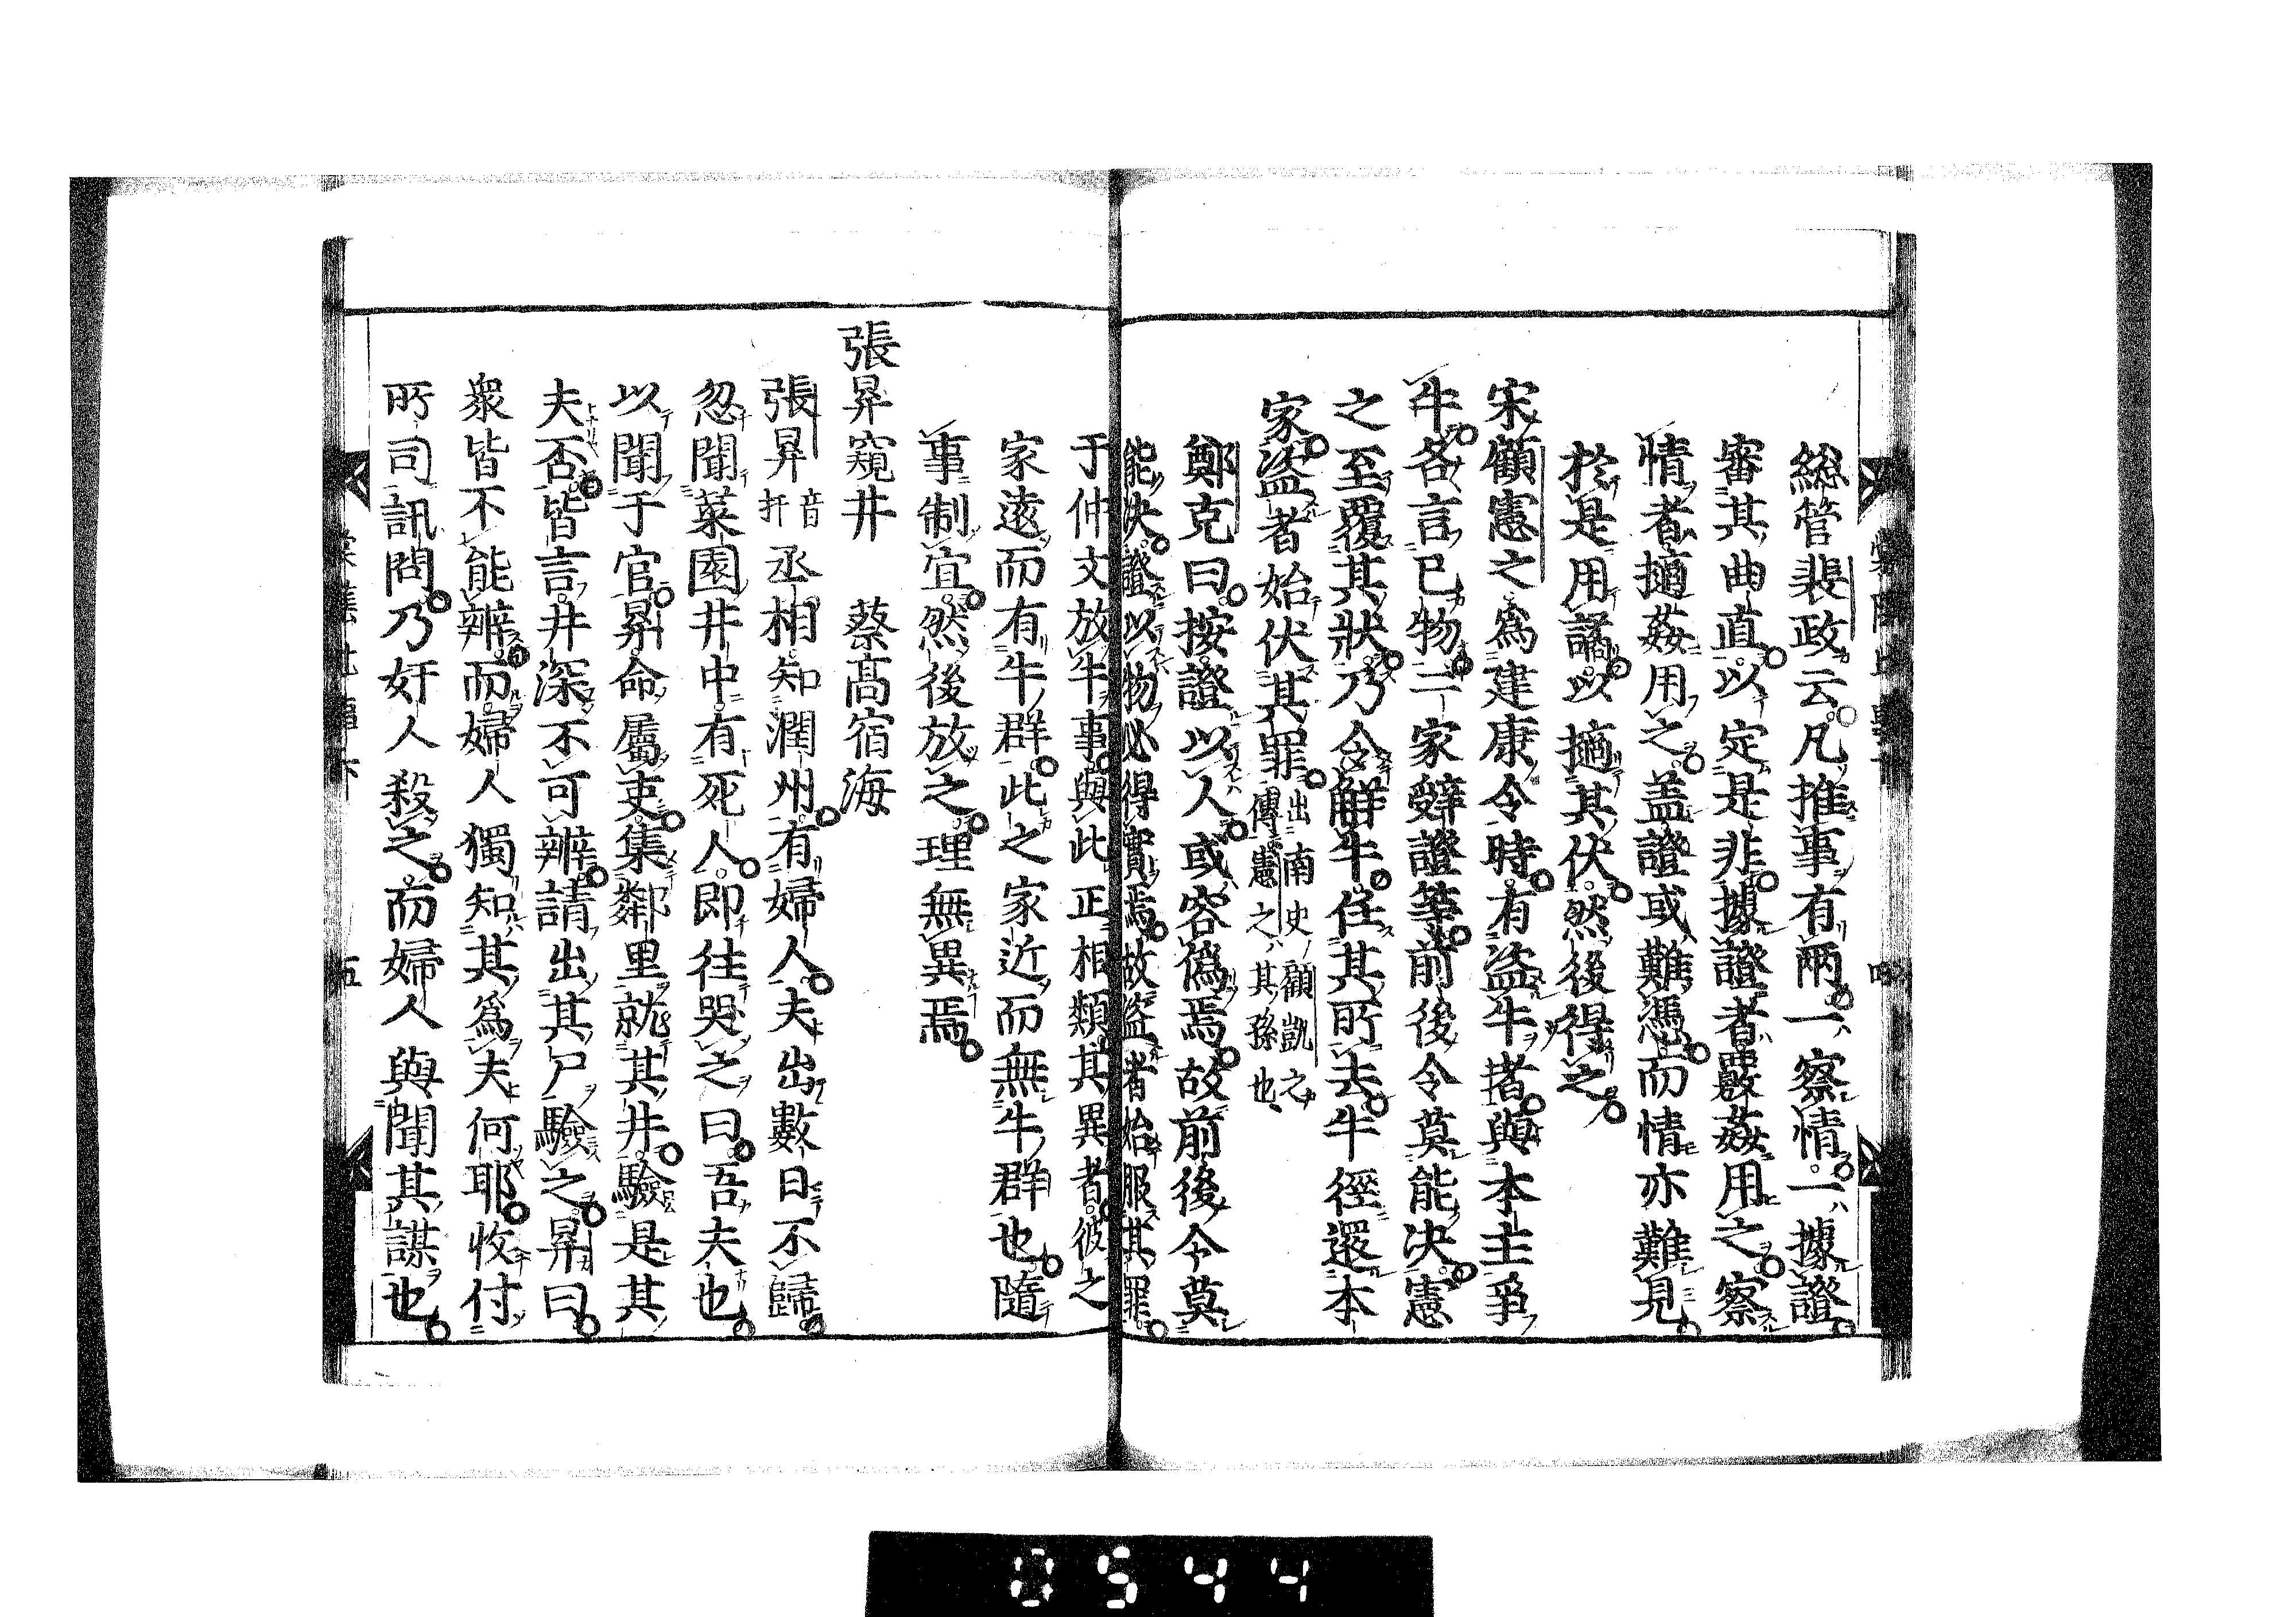 総管裴政云凡推事有兩一察情一據證
審其曲直以定是非據證者覈姦用之察
情者擿姦用之盖證或難憑而情亦難見
於是用譎以擿其伏然後得之
宋顧憲之為建康令時有盜牛者與本主爭
牛各言已物二家辭證等前後令莫能决憲
之至覆其狀乃令解牛任其所去牛徑還本
家盜者始伏其罪出南史顧凱之
傳憲之其孫也
鄭克曰按證以人或容偽焉故前後令莫
能决證以物必得實焉故盜者始服其罪
于仲文放牛事與此正相類其異者彼之
家遠而有牛群此之家近而無牛群也隨
事制宜然後放之理無異焉
張昇窺井 蔡高宿海
張昇音
抃丞相知潤州有婦人夫出數日不歸
忽聞菜園井中有死人即往哭之曰吾夫也
以聞于官昇命屬吏集鄰里就其井驗是其
夫否皆言井深不可辨請出其尸驗之昇曰
衆皆不能辨而婦人獨知其為夫何耶收付
所司訊問乃奸人殺之而婦人與聞其謀也
五
0544